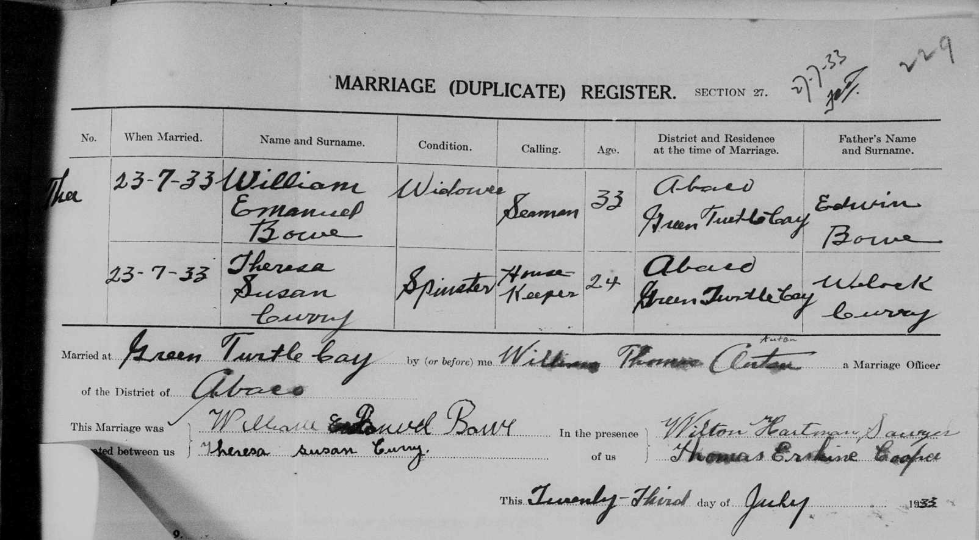 229
27-7-33
MARRIAGE (DUPLICATE) REGISTER. SECTION 27.
No. When Married. Name and Surname. Condition. Calling. Age. District and Residence at the time of Marriage. Father's Name and Surname.
23-7-33 William Emanuel Bowe Widower Seaman 33 Abaco Green Turtle Cay Edwin Bowe
23-7-33 Theresa Susan Curry Spinster House-Keeper 24 Abaco Green Turtle Cay Curry
Married at Green Turtle Cay by (or before) me William Thomas a Marriage Officer
of the District of Abaco
This Marriage was William Bowe In the presence Wilton Hartman Sawyer
ted between us Theresa Susan Curry. of us Thomas Erskine Cooper
This Twenty-Third day of July 1933
9.